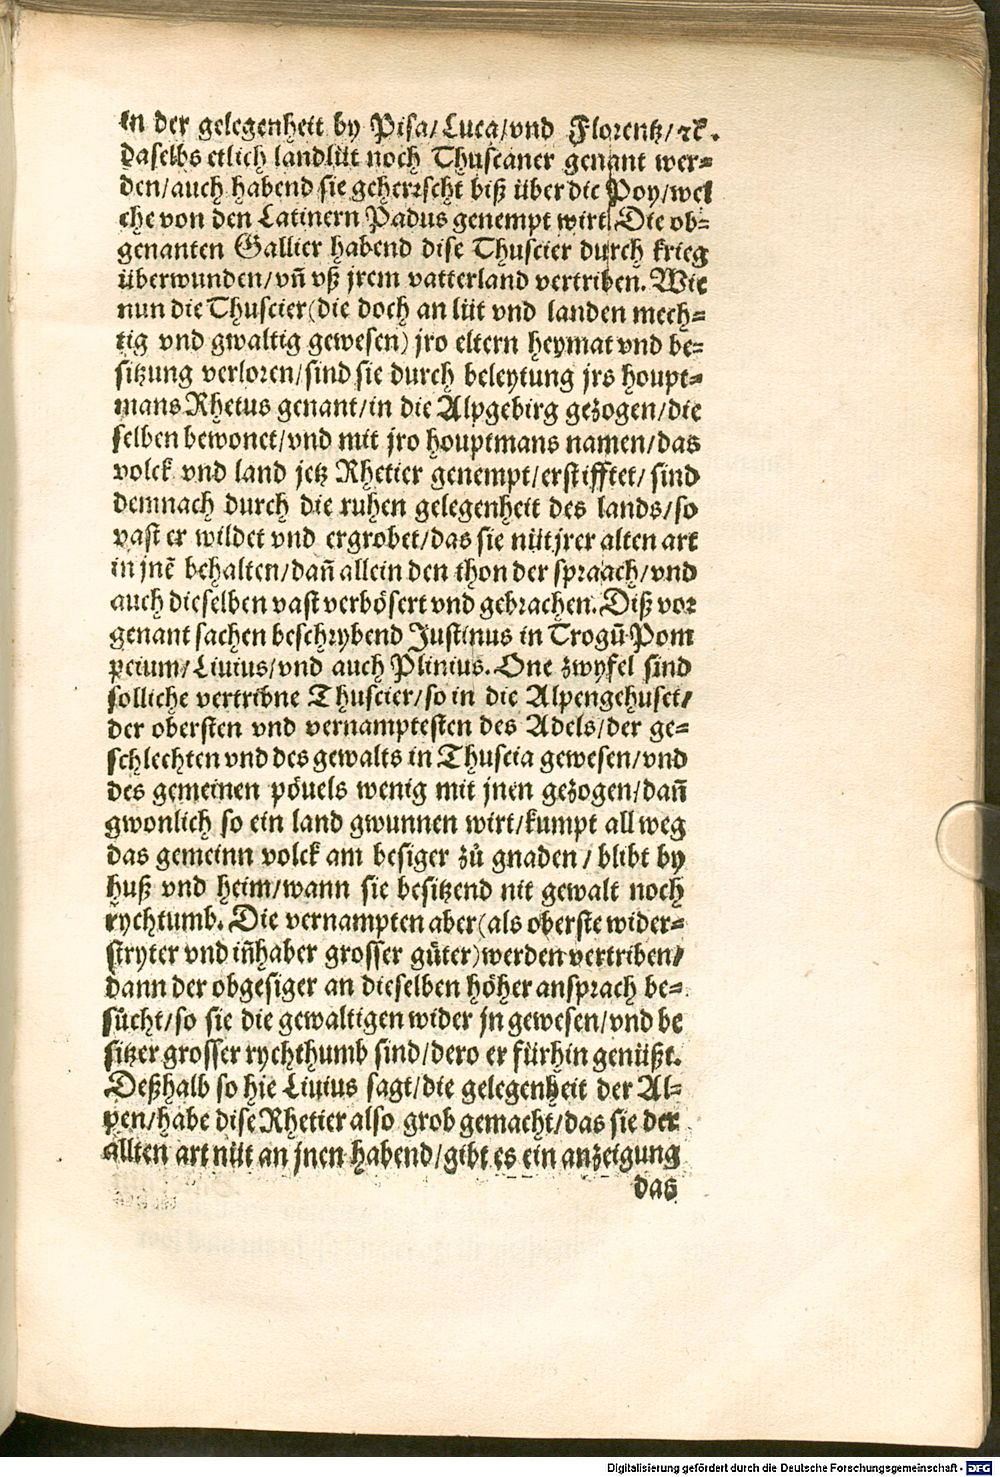 in der gelegenheit by Pisa/ Luca/ vnd Florentz/ ꝛc.
daselbs etlich landlüt noch Thuscaner genant wer⸗
den/ auch habend sie geherrscht biß über die Poy/ wel
che von den Latinern Padus genempt wirt. Die ob⸗
genanten Gallier habend dise Thuscier durch krieg
überwunden/ vñ vß jrem vatterland vertriben. Wie
nun die Thuscier (die doch an lüt vnd landen mech⸗
tig vnd gwaltig gewesen) jro eltern heymat vnd be⸗
sitzung verloren/ sind sie durch beleytung jrs houpt⸗
mans Rhetus genant/ in die Alpgebirg gezogen/ die
selben bewonet/ vnd mit jro houptmans namen/ das
volck vnd land jetz Rhetier genempt/ erstifftet/ sind
demnach durch die ruhen gelegenheit des lands/ so
vast er wildet vnd ergrobet/ das sie nüt jrer alten art
in jnẽ behalten/ dañ allein den thon der spraach/ vnd
auch dieselben vast verbösert vnd gebrachen. Diß vor
genant sachen beschrybend Justinus in Trogũ Pom
peium/ Liuius/ vnd auch Plinius. One zwyfel sind
solliche vertribne Thuscier/ so in die Alpen gehuset/
der obersten vnd vernamptesten des Adels/ der ge⸗
schlechten vnd des gewalts in Thuscia gewesen/ vnd
des gemeinen pöuels wenig mit jnen gezogen/ dañ
gwonlich so ein land gwunnen wirt/ kumpt all weg
das gemeinn volck am besiger zů gnaden/ blibt by
huß vnd heim/ wann sie besitzend nit gewalt noch
rychtumb. Die vernampten aber (als oberste wider⸗
stryter vnd iñhaber grosser güter) werden vertriben/
dann der obgesiger an dieselben höher ansprach be⸗
sücht/ so sie die gewaltigen wider jn gewesen/ vnd be
sitzer grosser rychthumb sind/ dero er fürhin genüßt.
Deßhalb so hie Liuius sagt/ die gelegenheit der Al⸗
pen/ habe dise Rhetier also grob gemacht/ das sie der
allten art nüt an jnen habend/ gibt es ein anzeigung
das
Digitalisierung gefördert durch die Deutsche Forschungsgemeinschaft - DFG